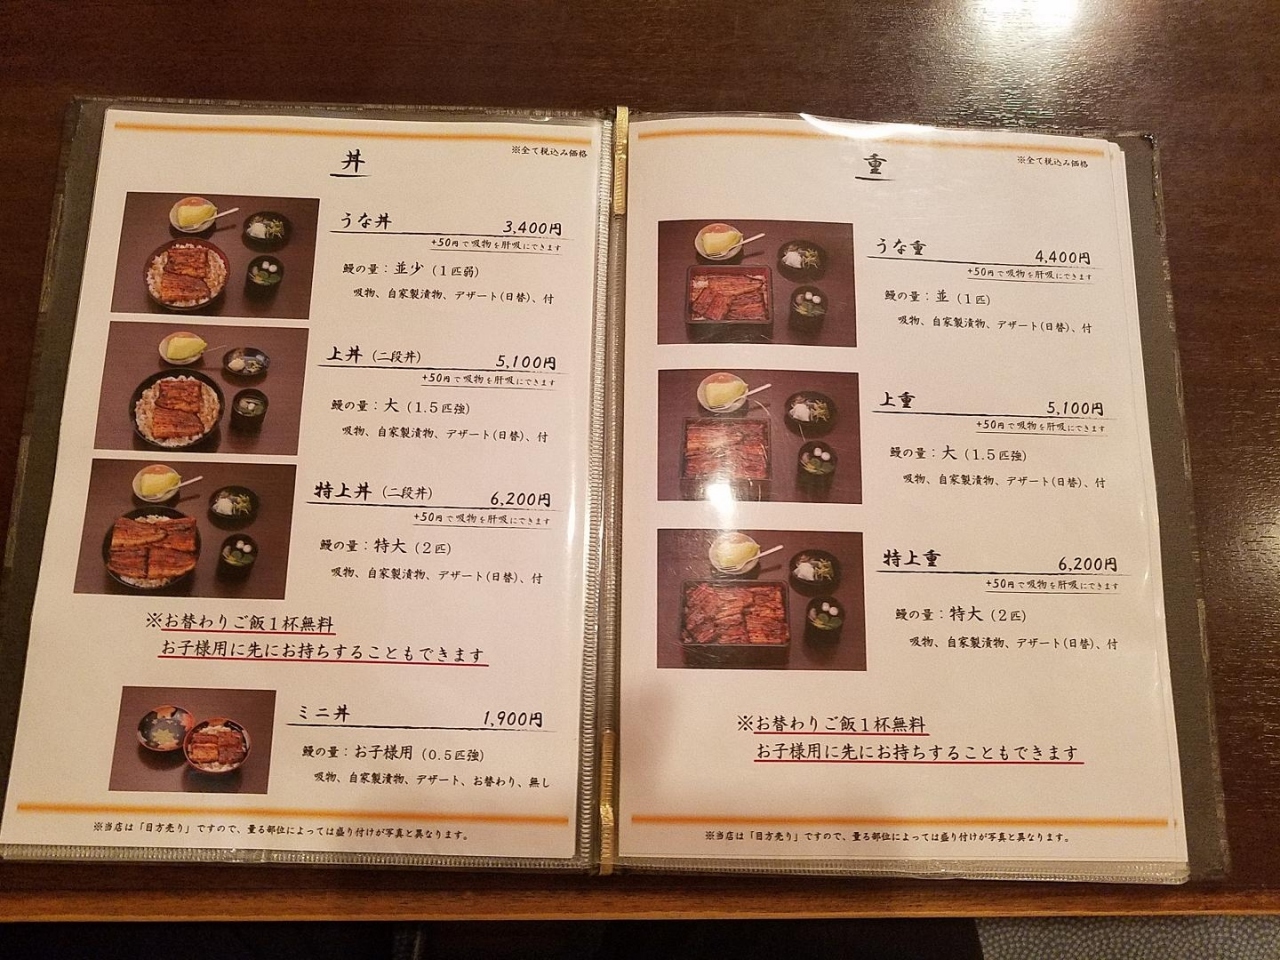 丼
※全て税込み価格
うな丼 3,400円
+50円で吸物を肝吸にできます
鰻の量：並少（1匹弱）
吸物、自家製漬物、デザート(日替)、付
上丼（二段丼） 5,100円
+50円で吸物を肝吸にできます
鰻の量：大（1.5匹強）
吸物、自家製漬物、デザート(日替)、付
特上丼（二段丼） 6,200円
+50円で吸物を肝吸にできます
鰻の量：特大（2匹）
吸物、自家製漬物、デザート(日替)、付
※お替わりご飯1杯無料
お子様用に先にお持ちすることもできます
ミニ丼 1,900円
鰻の量：お子様用（0.5匹強）
吸物、自家製漬物、デザート、お替わり、無し
※当店は「目方売り」ですので、量る部位によっては盛り付けが写真と異なります。
重
※全て税込み価格
うな重 4,400円
+50円で吸物を肝吸にできます
鰻の量：並（1匹）
吸物、自家製漬物、デザート(日替)、付
上重 5,100円
+50円で吸物を肝吸にできます
鰻の量：大（1.5匹強）
吸物、自家製漬物、デザート(日替)、付
特上重 6,200円
+50円で吸物を肝吸にできます
鰻の量：特大（2匹）
吸物、自家製漬物、デザート(日替)、付
※お替わりご飯1杯無料
お子様用に先にお持ちすることもできます
※当店は「目方売り」ですので、量る部位によっては盛り付けが写真と異なります。